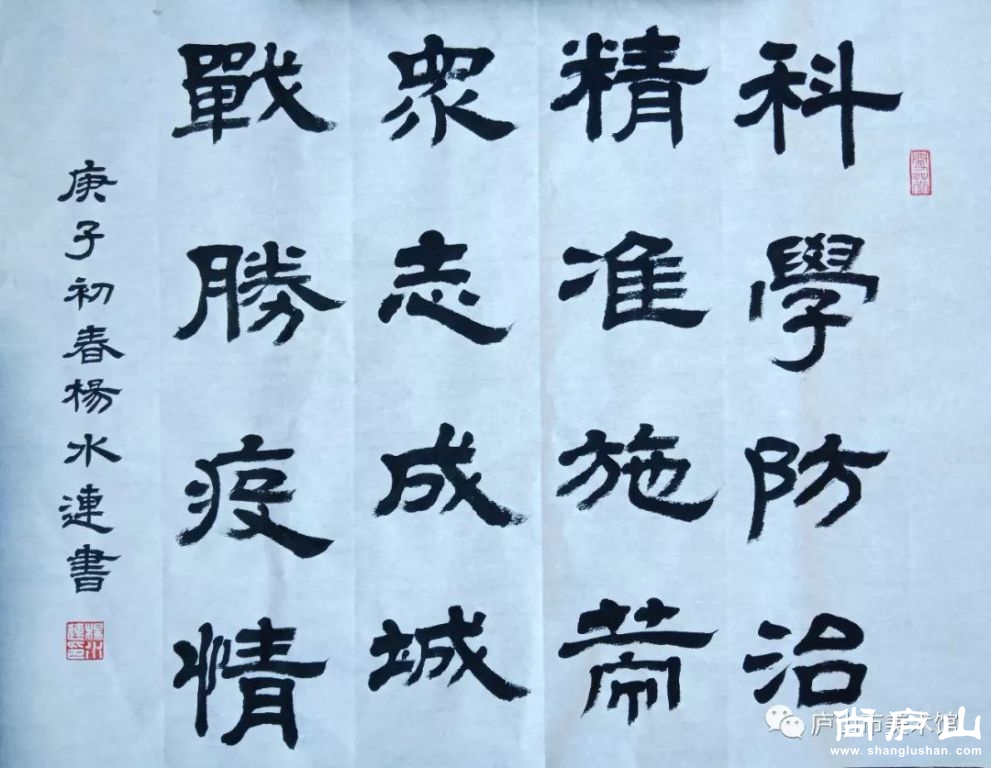 科學防治
精准施策
衆志成城
戰勝疫情
庚子初春楊水連書
楊水連印
庐山市美术馆
尚庐山
www.shanglushan.com